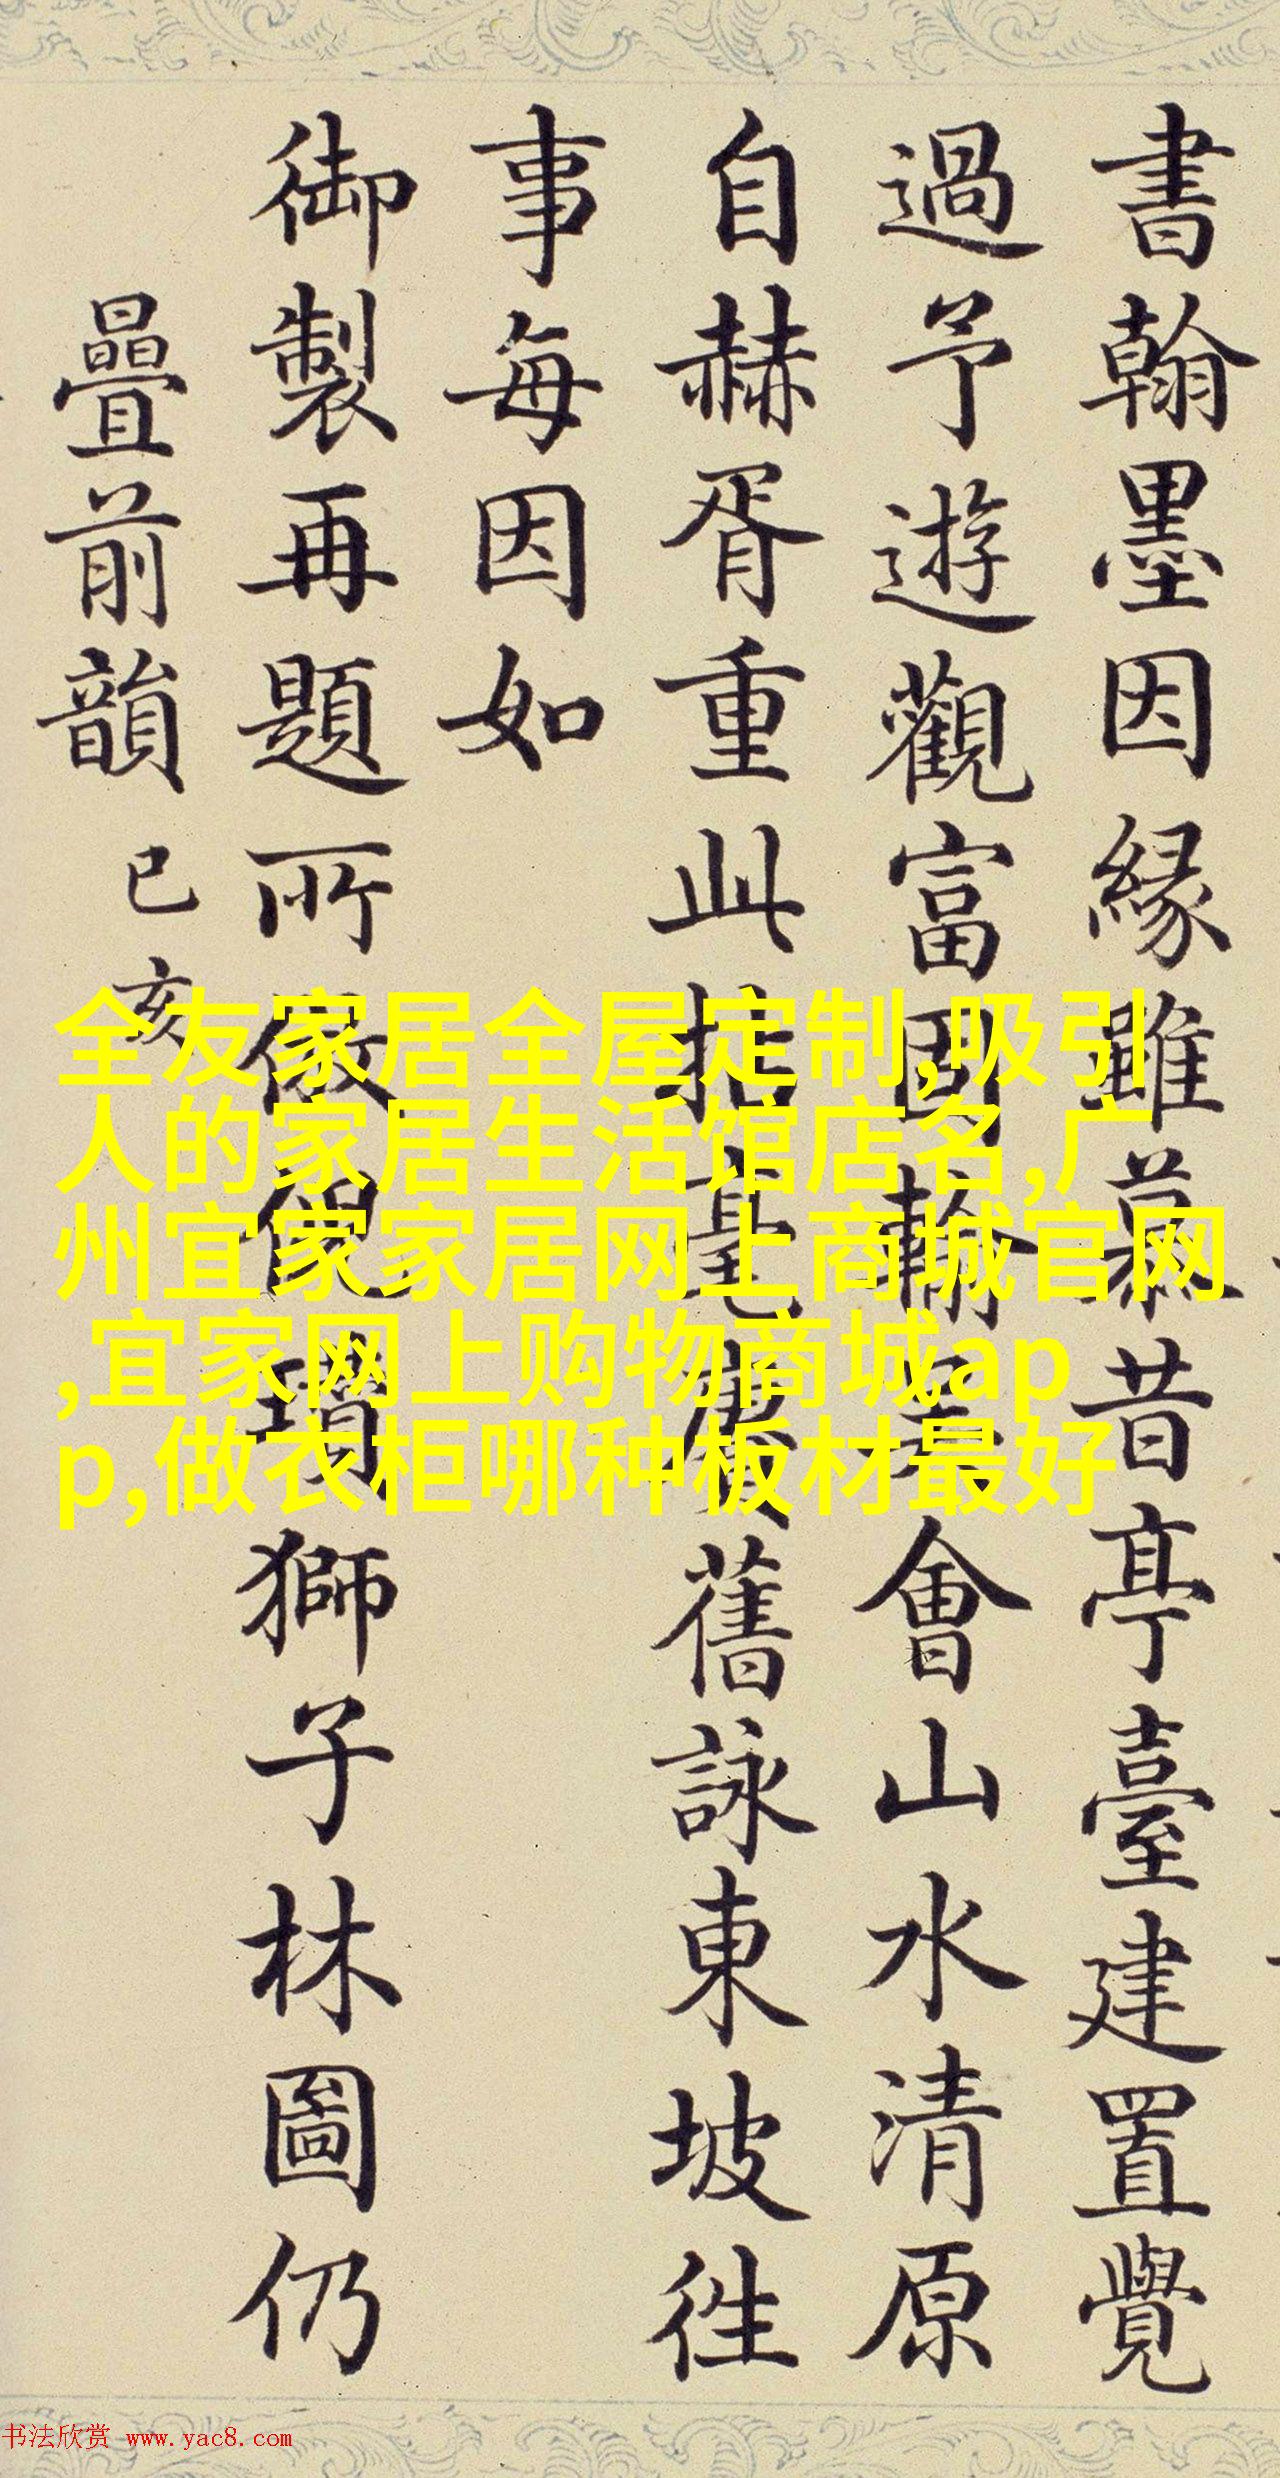 書翰墨因緣雖慕昔亭臺建置覺
過予遊觀富圖翰墨會山水清原
自赫胥重此拈毫賡舊詠東坡徃
事每因如
御製再題所倣倪瓚獅子林圖仍
疊前韻 己亥
全友家居全屋定制,吸引
人的家居生活馆店名,广
州宜家家居网上商城官网
,宜家网上购物商城ap
p,做衣柜哪种板材最好
书法欣赏 www.yac8.com